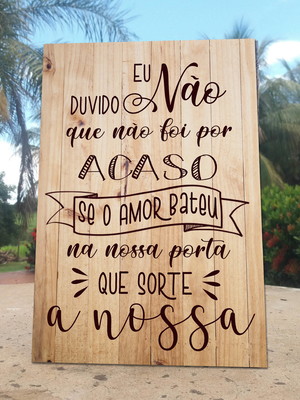 EU Não
DUVIDO
que não foi por
ACASO
Se O AMOR Bateu
na nossa porta
QUE SORTE
a nossa